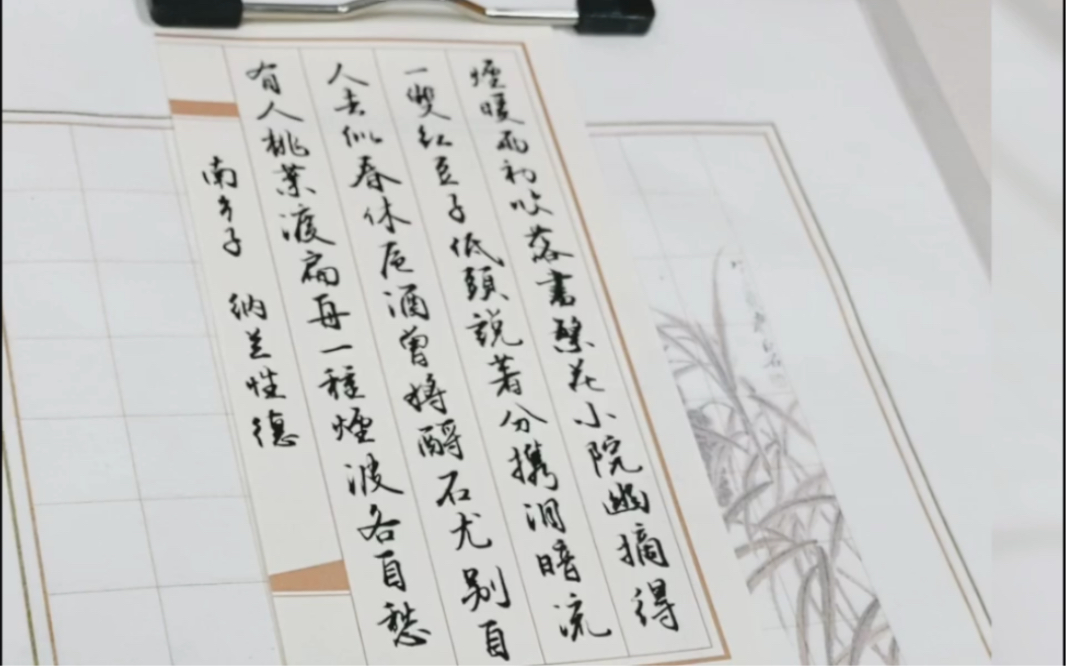 煙暖雨初收落書繁花小院幽摘得
一雙紅豆子低頭說著分攜泪暗流
人去似春休卮酒曾將酹石尤别自
有人桃葉渡扁舟一種煙波各自愁
南乡子 納兰性德